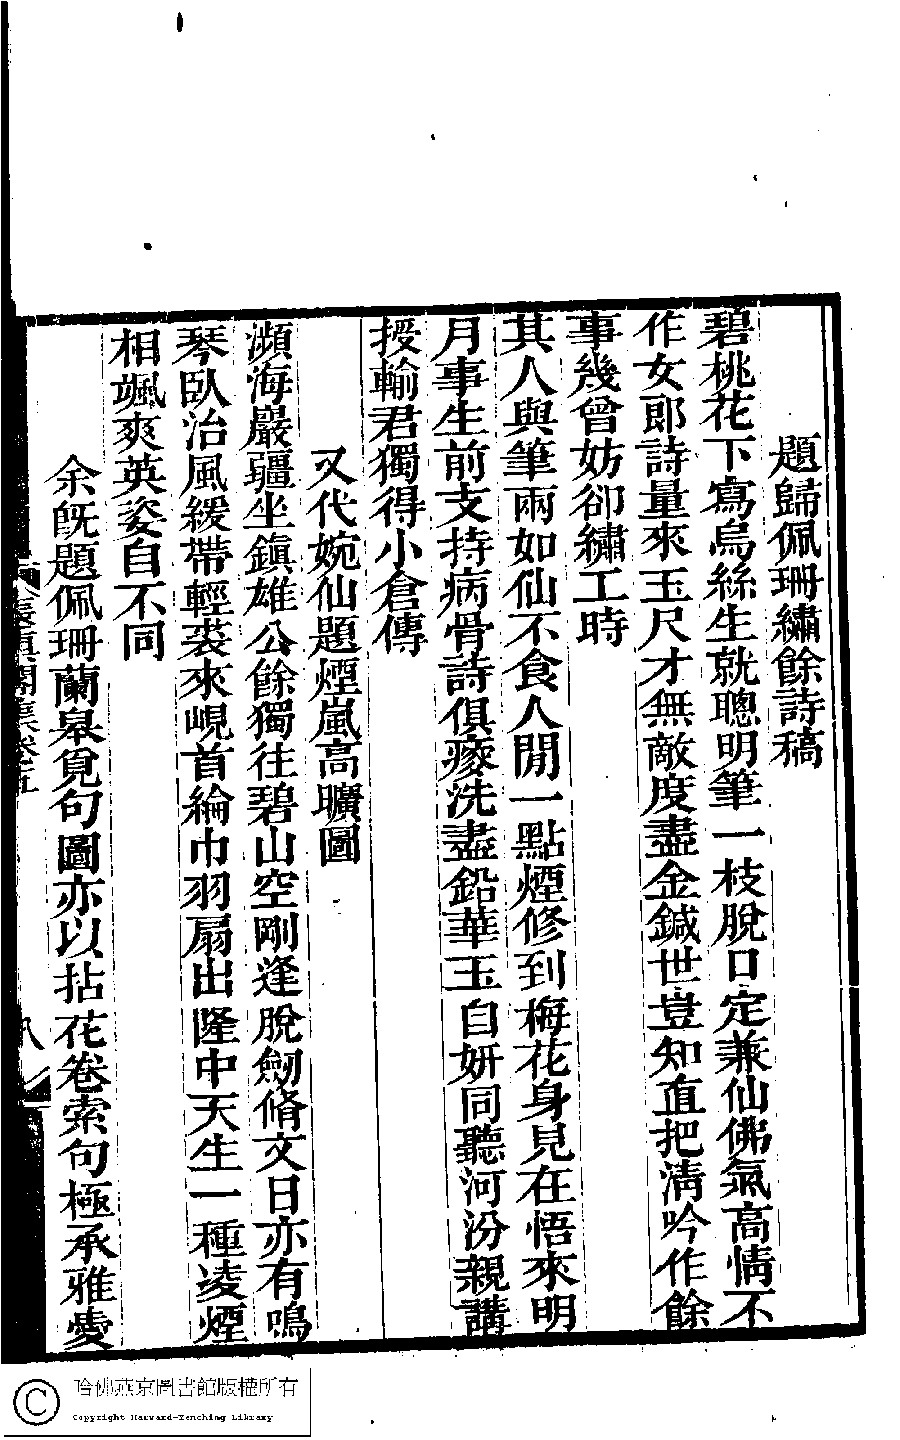 題歸佩珊繡餘詩稿
碧桃花下寫烏絲生就聰明筆一枝脫口定兼仙佛氣高情不
作女郎詩量來玉尺才無敵度盡金鍼世豈知直把淸吟作餘
事幾曾妨卻繡工時
其人與筆兩如仙不食人閒一點煙修到梅花身見在悟來明
月事生前支持病骨詩俱瘦洗盡鉛華玉自妍同聽河汾親講
授輸君獨得小倉傳
又代婉仙題煙嵐高曠圖
瀕海嚴疆坐鎭雄公餘獨往碧山空剛逢脫劒脩文日亦有鳴
琴臥治風緩帶輕裘來峴首綸巾羽扇出隆中天生一種凌煙
相颯爽英姿自不同
余旣題佩珊蘭皋覓句圖亦以拈花卷索句極承雅愛
長眞閣集卷五
八
哈佛燕京圖書館版權所有
Copyright Harvard-Yenching Library